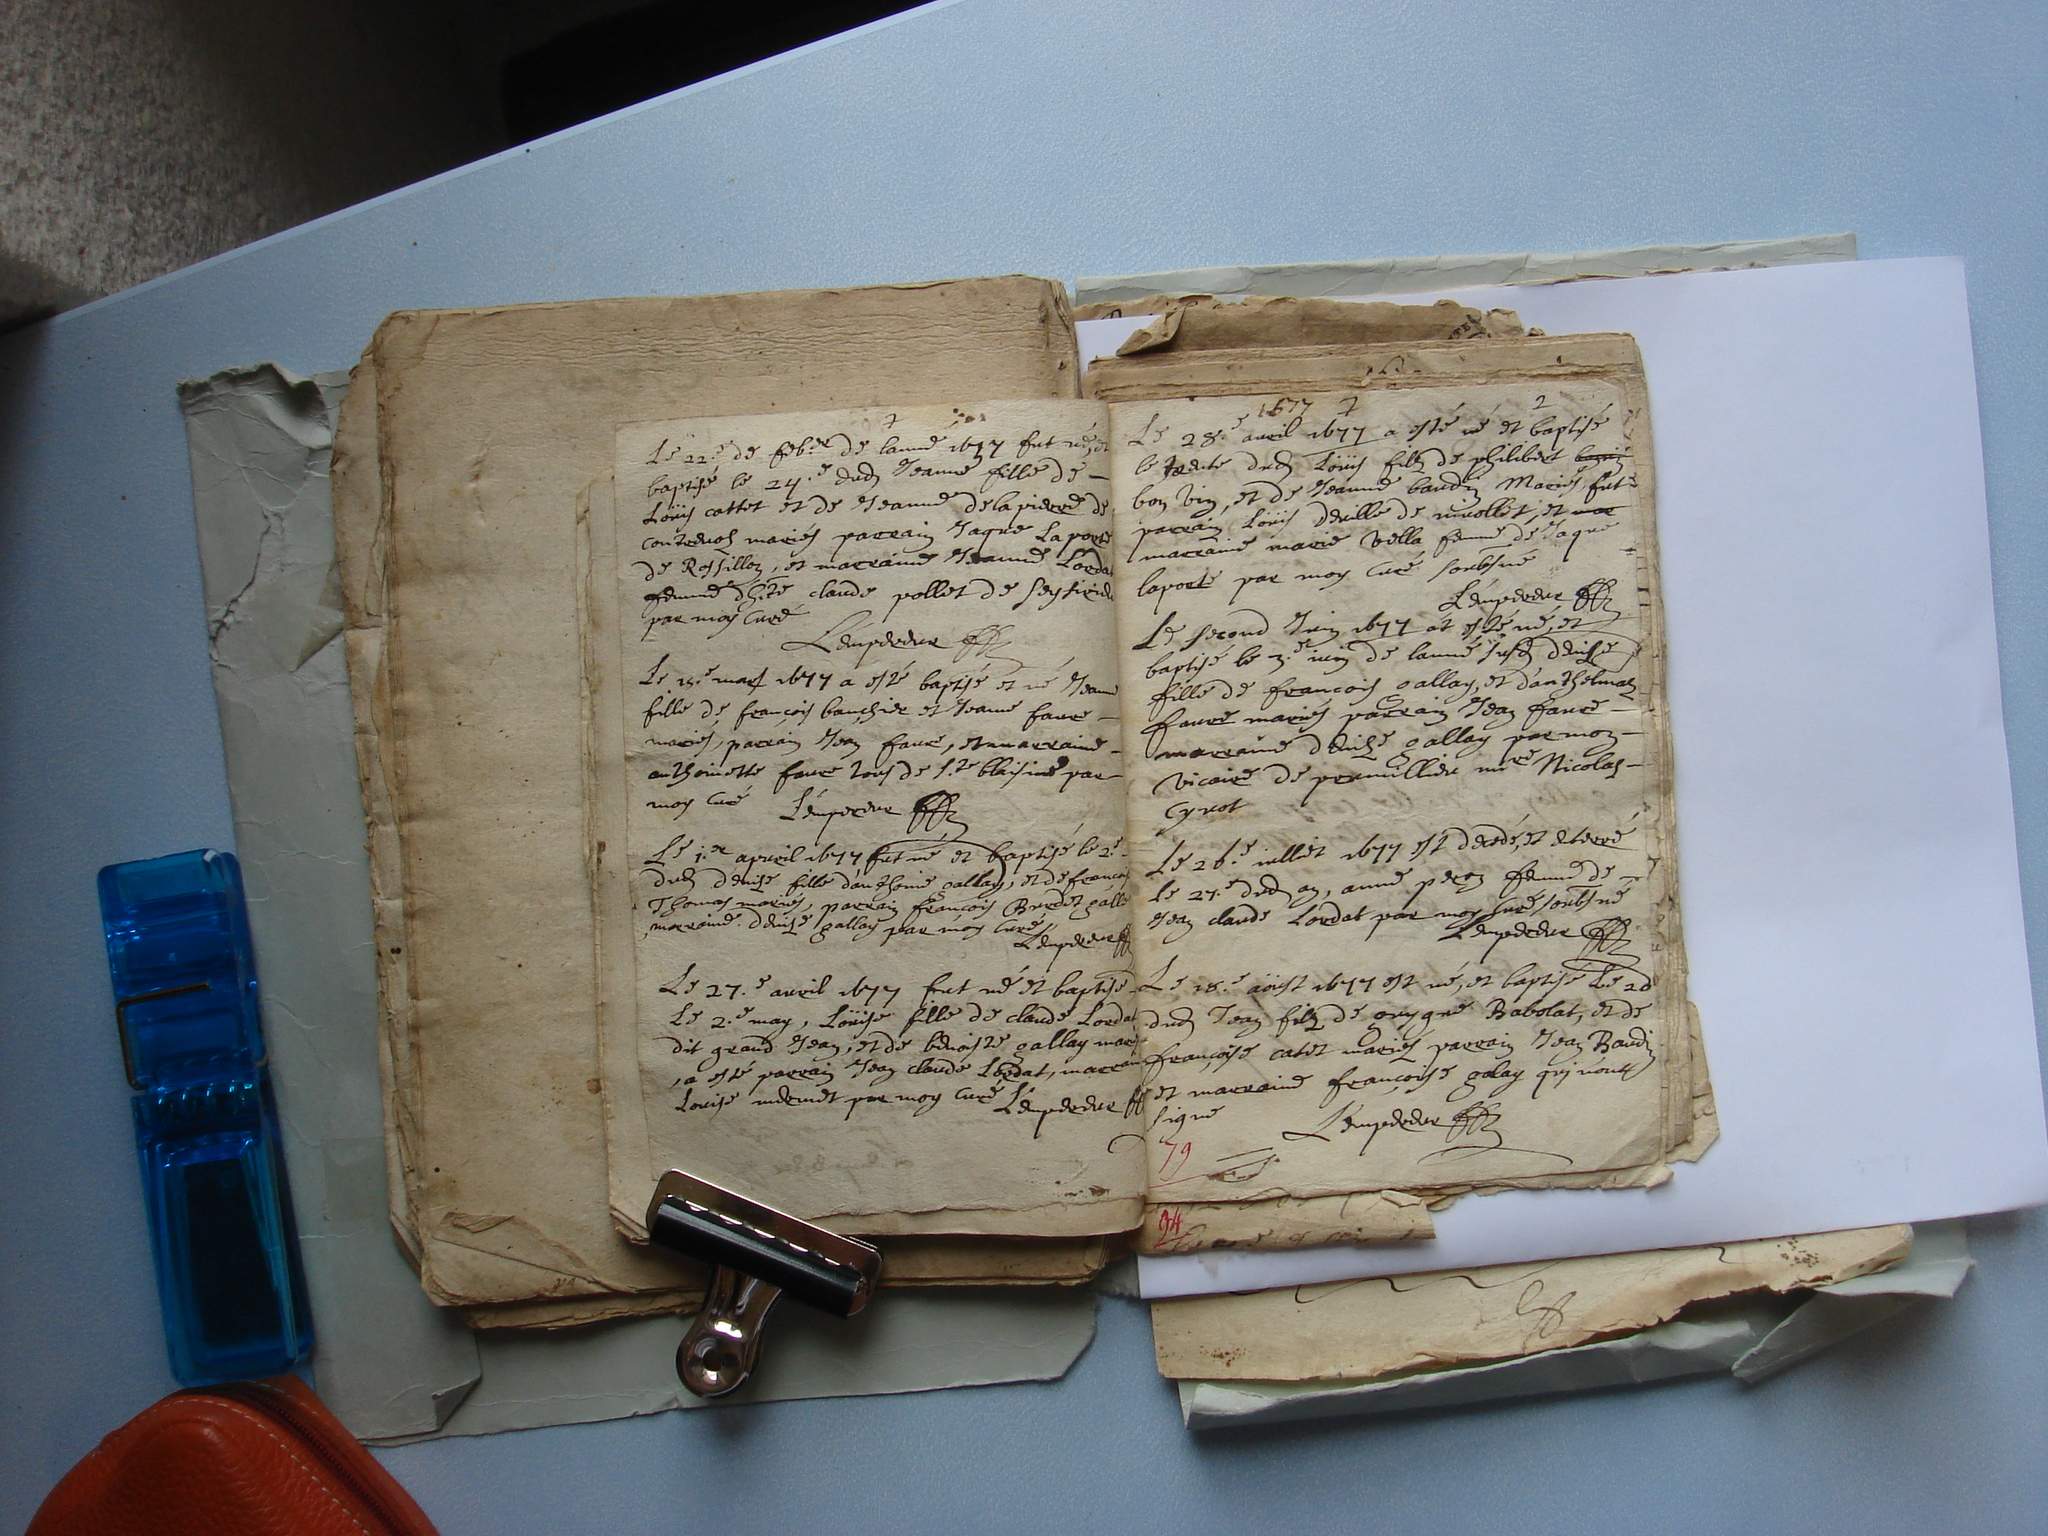 Le 22.e de feb.er de lanné 1677 fut né, et
baptisé le 24.e dud Jeanne fille de
Loüis cattet et de Jeanne delapierre de
mariés parrain Jaque Laporte
de Rossillon, et marraine Jeanne Lordat
femme claude pollet de
par moy Curé
Lempereur
Le 18.e mars 1677 a esté baptisé et né Jeanne
fille de françois bauchier et Jeanne faure
mariés, parrain Jean faure, et marraine
anthoinette faure tous de s.te blaisine par
moy Curé Lempereur
Le 1.er apvril 1677 fut né et baptisé le 2.e
dud denise fille danthoine gallay, et de françoise
Thomas mariés, parrain françois gallay
marraine denise gallay par moy Curé
Lempereur
Le 27.e avril 1677 fut né et baptisé
Le 2.e may, Loüise fille de claude Lordat
dit grand Jean, et de benoiste gallay mariés
, a esté parrain Jean claude Lordat, marraine
Louise par moy Curé Lempereur
1677 2
Le 28.e avril 1677 a esté né et baptisé
le trente dud Loüis filz de philibert
bon vin, et de Jeanne baudin Mariés fut
parrain Loüis deville de, et
marraine marie vella femme de Jaque
laporte par moy Curé soubsné
Lempereur
Le second Juin 1677 at esté né, et
baptisé le 3.e iuin de lanné susd denise
fille de françois gallay, et danthelmaz
faure mariés parrain Jean faure
marraine denise gallay par moy
vicaire de premillieu m.re Nicolas
Cyrot
Le 26.e iulliet 1677 est decedé, et eterré
le 27.e dud an, anne peron femme de
Jean claude Lordat par moy Curé soubsné
Lempereur
Le 18.e aöust 1677 est né, et baptisé Le 20
dud Jean filz de Babolat, et de
françoise catet mariés parrain Jean Baudin
et marraine françoise galay qui nont
signé Lempereur
79
94